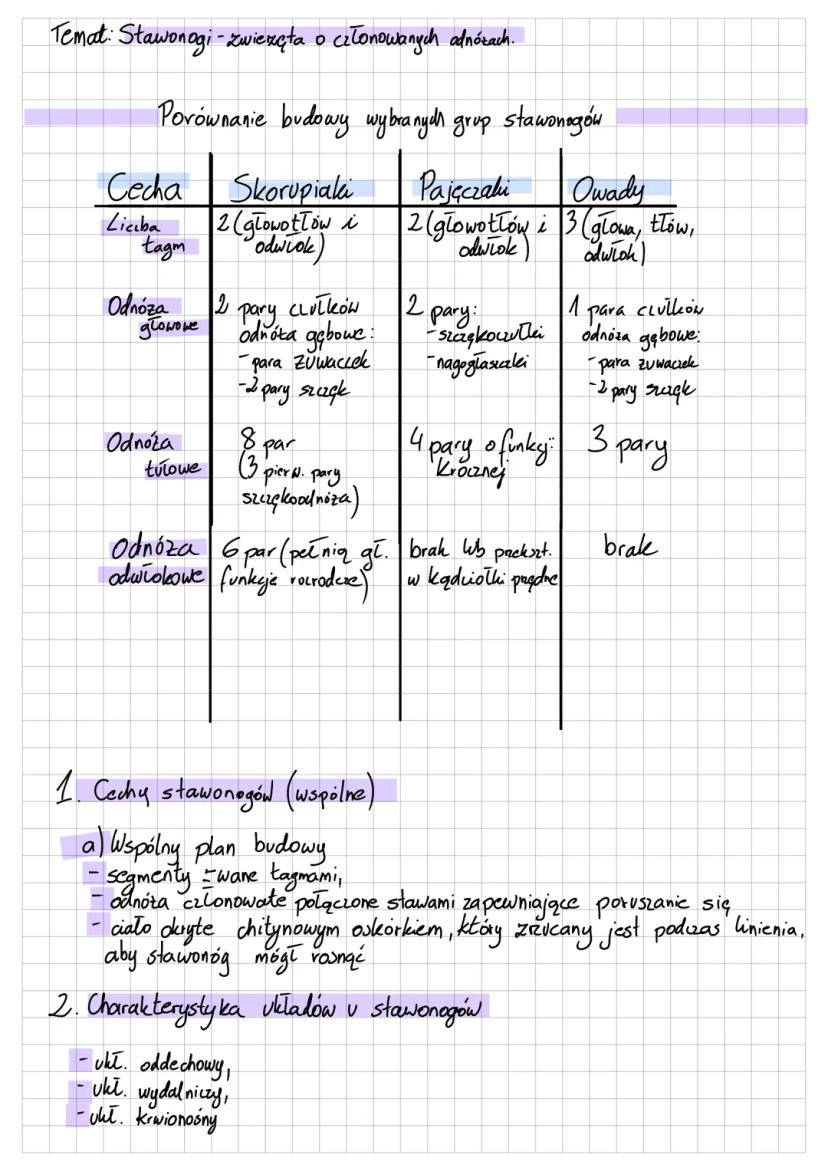 Temat: Stawonogi - zwierzęta o członowanych odnóżach.
Porównanie budowy wybranych grup stawonogów
Cecha Skorupiaki Pajęczaki Owady
Liczba tagm
2 (głowotłów i odwłok)
2 (głowotłów i odwłok)
3 (głowa, tłów, odwłok)
Odnóża głowowe
2 pary czułków
odnóża gębowe:
- para żuwaczek
- 2 pary szczęk
2 pary:
- szczękoczułki
- nogogłaszczki
1 para czułków
odnóża gębowe:
- para żuwaczek
- 2 pary szczęk
Odnóża tułowe
8 par
(3 pierw. pary
szczękoodnóża)
4 pary o funkcji
krocznej
3 pary
Odnóża odwłokowe
6 par (pełnią gł.
funkcje rozrodcze)
brak lub przekszt.
w kądziołki przędne
brak
1. Cechy stawonogów (wspólne)
a) Wspólny plan budowy
- segmenty zwane tagmami,
- odnóża członowate połączone stawami zapewniające poruszanie się
- ciało okryte chitynowym oskórkiem, który zrzucany jest podczas linienia,
aby stawonóg mógł rosnąć
2. Charakterystyka układów u stawonogów
- ukł. oddechowy,
- ukł. wydalniczy,
- ukł. krwionośny